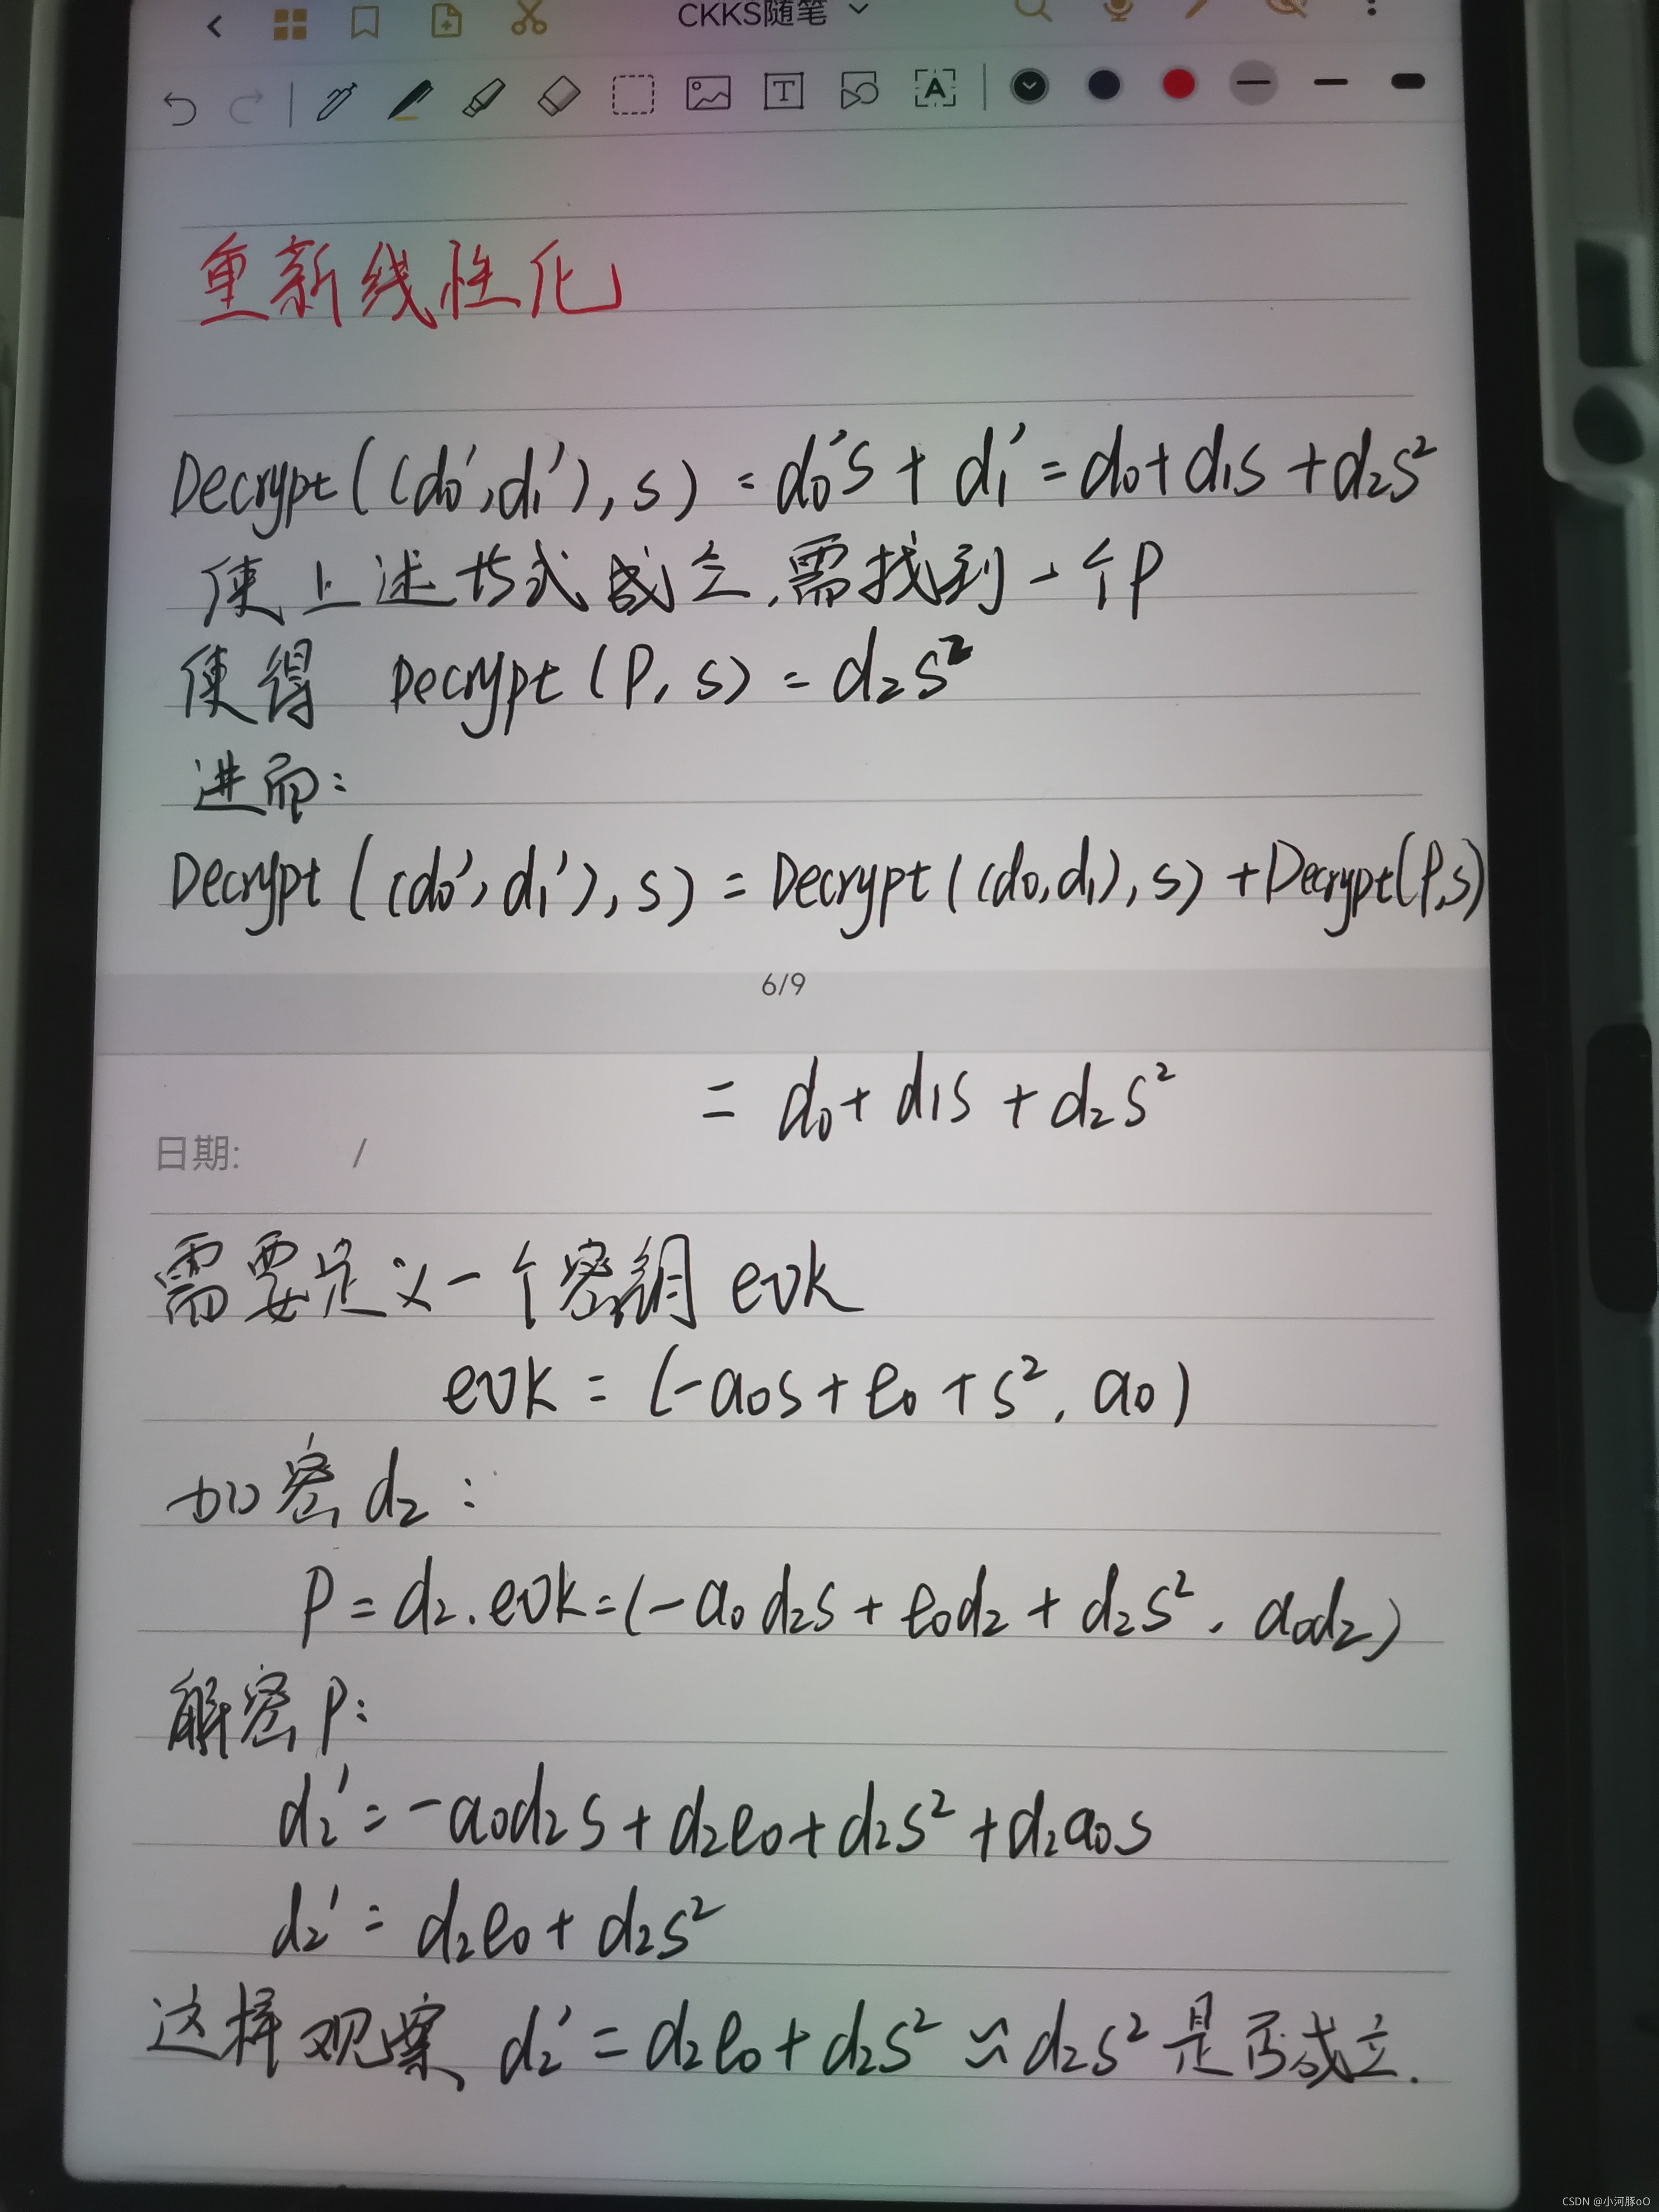 CKKS随笔
重新线性化
Decrypt((d₀',d₁'),s) = d₀'s + d₁' = d₀+d₁s+d₂s²
使上述公式成立,需找到一个P
使得 Decrypt(P,s) = d₂s²
进而:
Decrypt((d₀',d₁'),s) = Decrypt((d₀,d₁),s)+Decrypt(P,s)
6/9
= d₀+d₁s+d₂s²
日期: /
需要定义一个密钥 evk
evk = (-a₀s+e₀+s², a₀)
加密d₂:
P = d₂.evk=(-a₀d₂s+e₀d₂+d₂s², a₀d₂)
解密P:
d₂'=-a₀d₂s+d₂e₀+d₂s²+d₂a₀s
d₂'= d₂e₀+d₂s²
这样观察 d₂'=d₂e₀+d₂s²≈d₂s²是否成立.
CSDN @小河豚oO